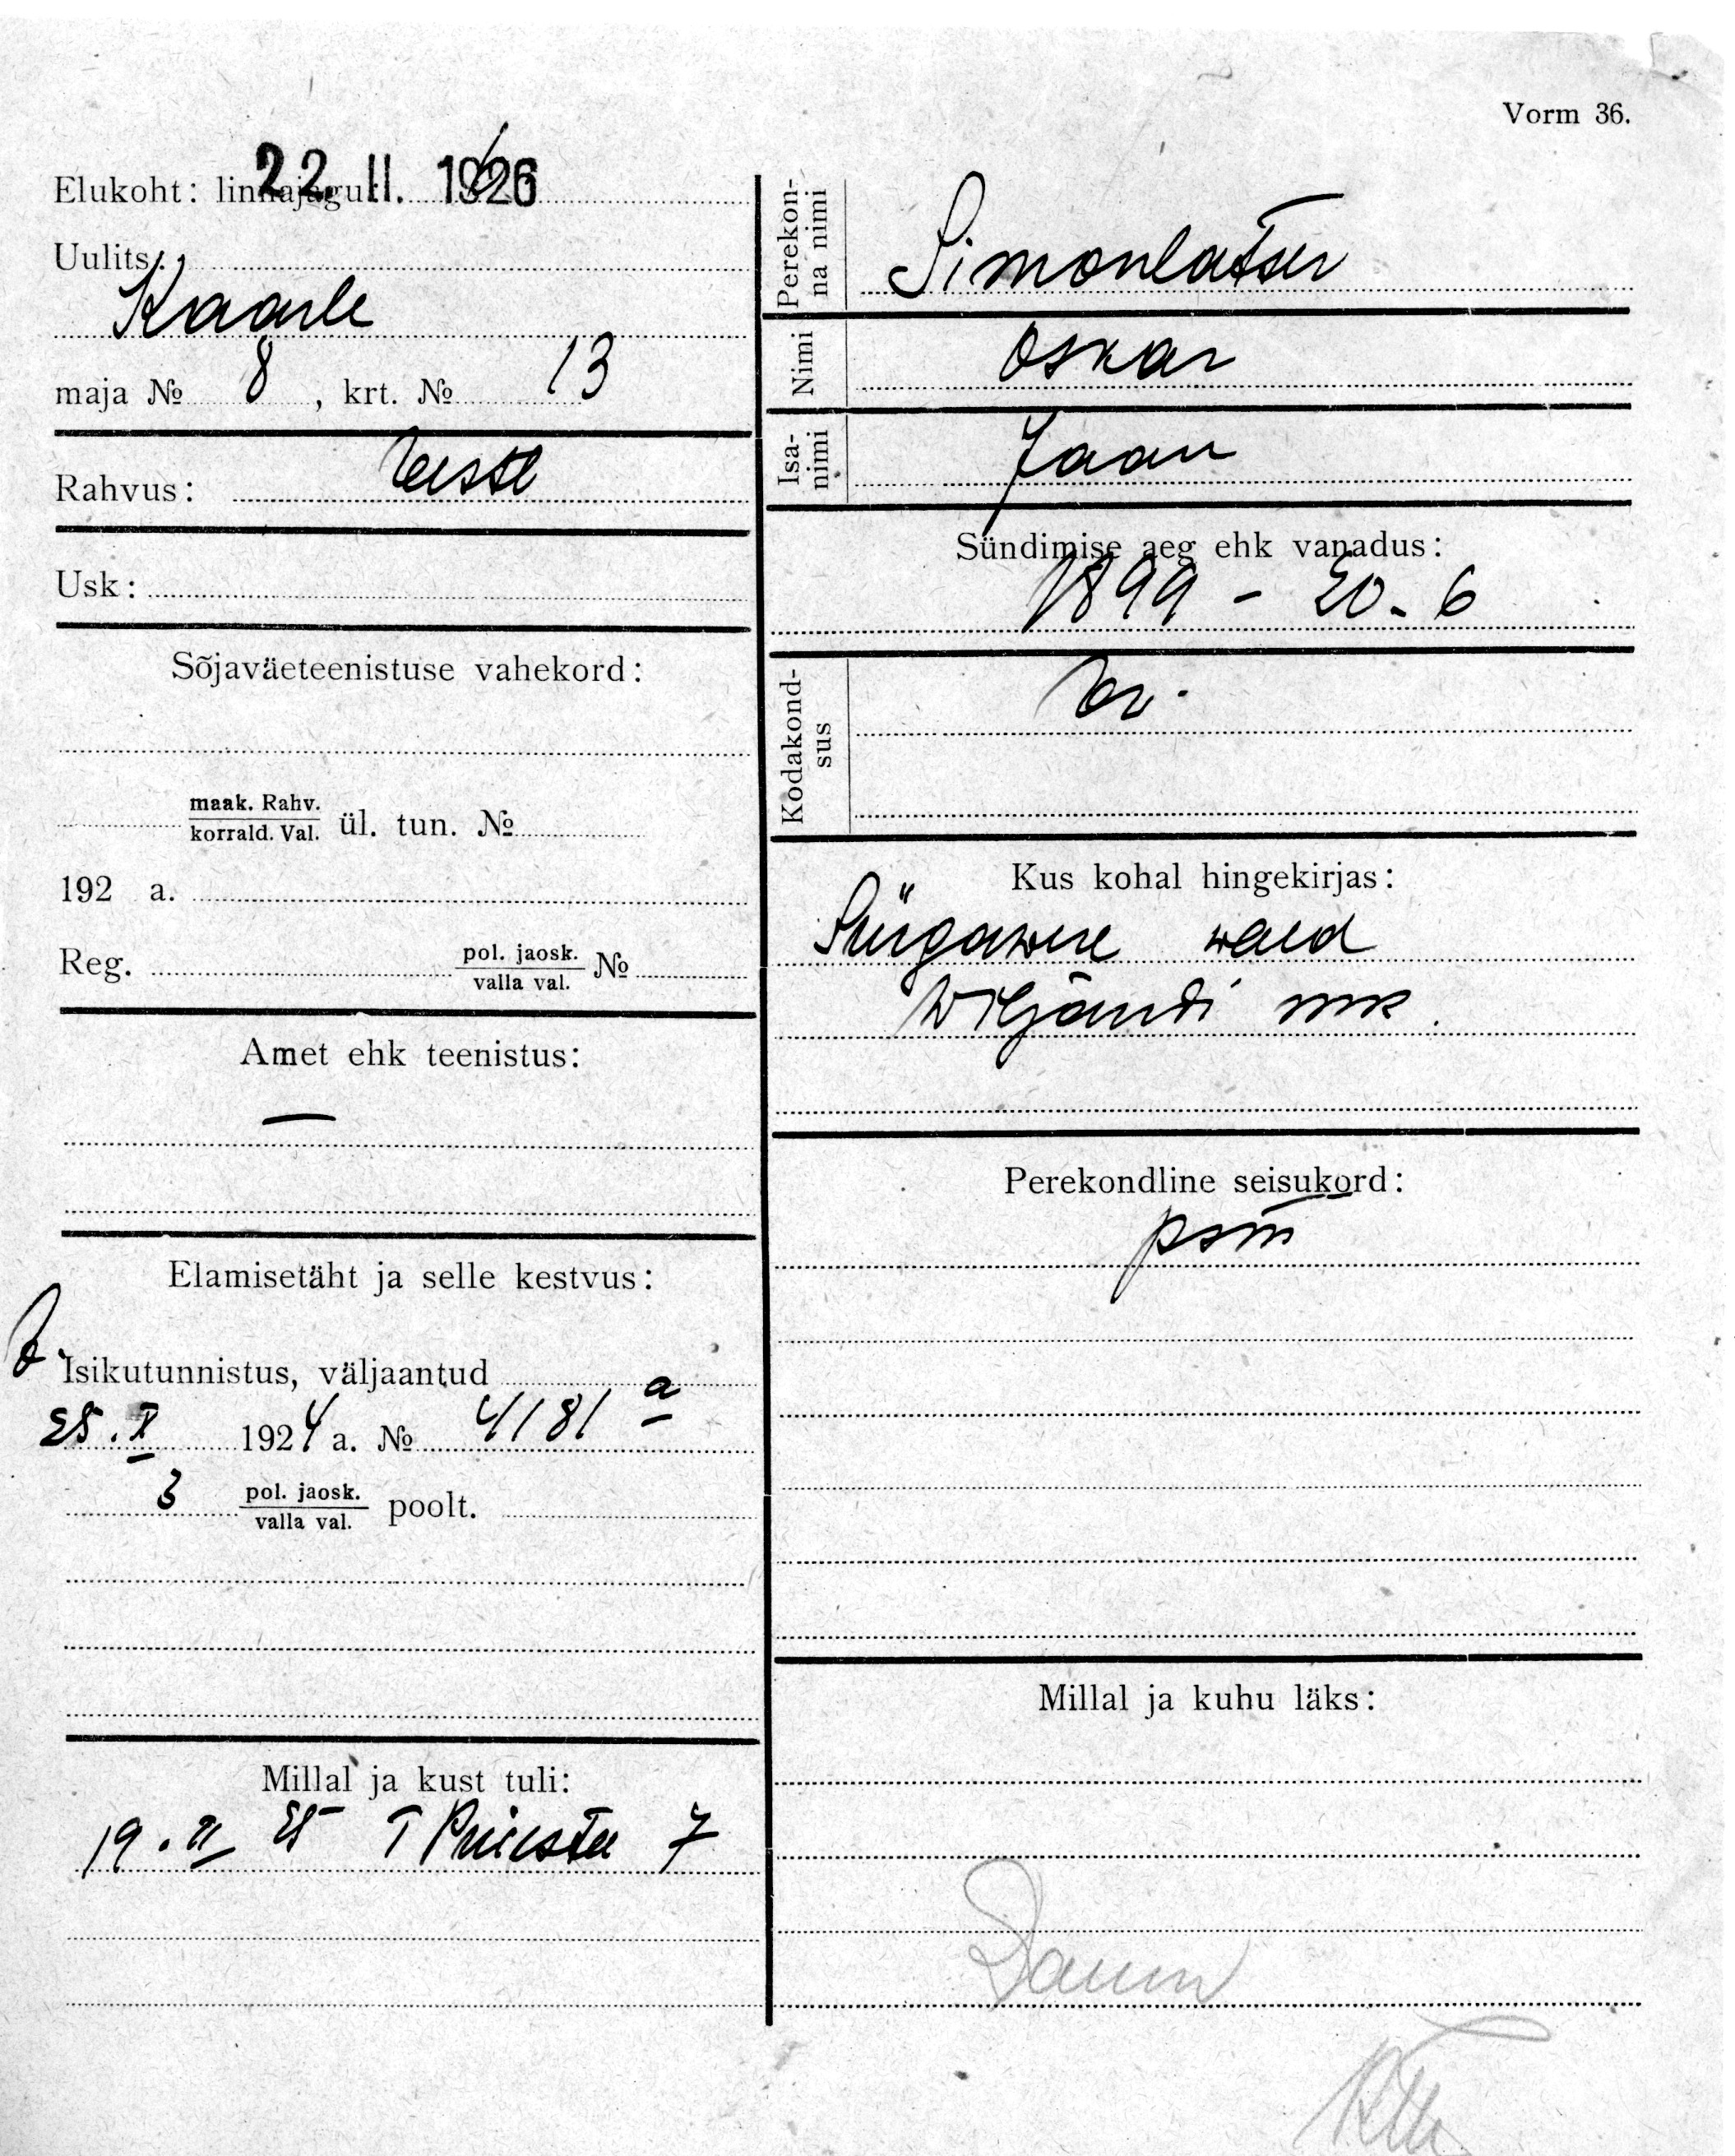 Vorm 36.
22. II. 1926
Elukoht: linnajagu:
Uulits:
Kaarle
maja № 8, krt. № 13
Rahvus: Eesti
Usk:
Sõjaväeteenistuse vahekord:
maak. Rahv.
korrald. Val. ül. tun. №
192 a.
Reg. pol. jaosk.
valla val. №
Amet ehk teenistus:
—
Elamisetäht ja selle kestvus:
Isikutunnistus, väljaantud
25. X 1924 a. № 4181 a
3 pol. jaosk.
valla val. poolt.
Millal ja kust tuli:
19. II 25 T Puiestee 7
Perekonna nimi
Simonlatser
Nimi
Oskar
Isanimi
Jaan
Sündimise aeg ehk vanadus:
1899 - 20. 6
Kodakondsus
Ev.
Kus kohal hingekirjas:
Sürgawere wald
Wiljandi mk.
Perekondline seisukord:
Millal ja kuhu läks: